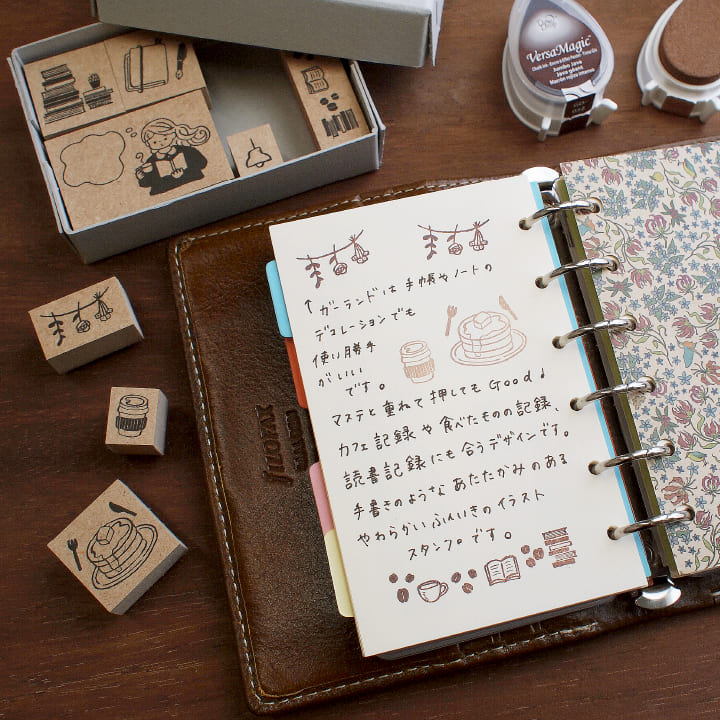 VersaMagic™
↑ガーランドは手帳やノートの
デコレーションでも
使い勝手
がいい
です。
マステと重ねて押してもGood♪
カフェ記録や食べたものの記録、
読書記録にも合うデザインです。
手書きのようなあたたかみのある
やわらかいふんいきのイラスト
スタンプです。